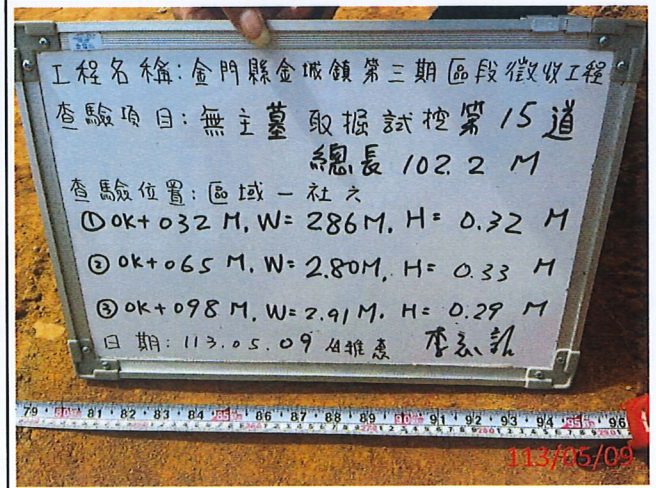 工程名稱:金門縣金城鎮第三期區段徵收工程
查驗項目:無主墓取掘試挖第15道
總長102.2 M
查驗位置:區域一社六
①0K+032 M, W=286M, H= 0.32 M
②0K+065 M, W=2.80M, H= 0.33 M
③0K+098 M, W=2.91M, H= 0.29 M
日期:113.05.09
79 80 81 82 83 84 85 86 87 88 89 90 91 92 93 94 95 96
113/05/09